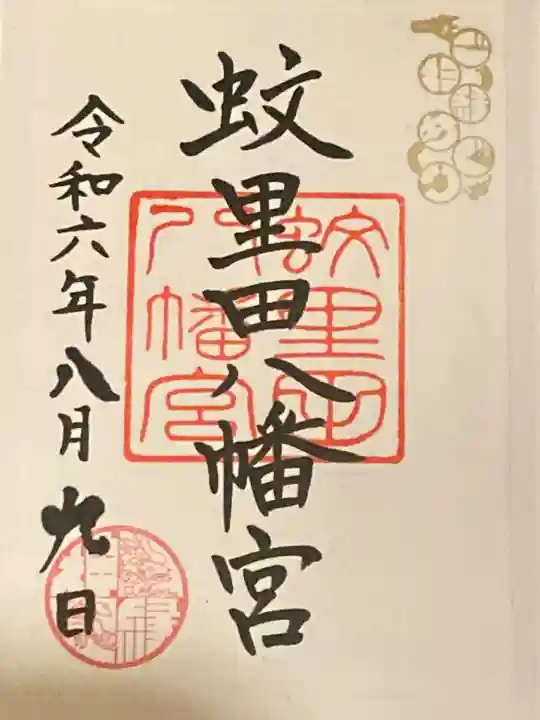 蚊里田八幡宮
令和六年八月九日
蚊里田八幡宮